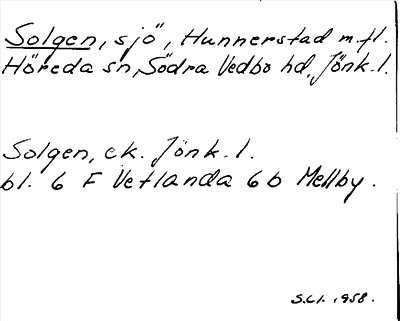 Solgen, sjö, Hunnerstad m.fl.
Höreda sn, Södra Vedbo hd, Jönk.l.
Solgen, ek. Jönk.l.
bl. 6 F Vetlanda 6b Mellby.
S.Cl. 1958.